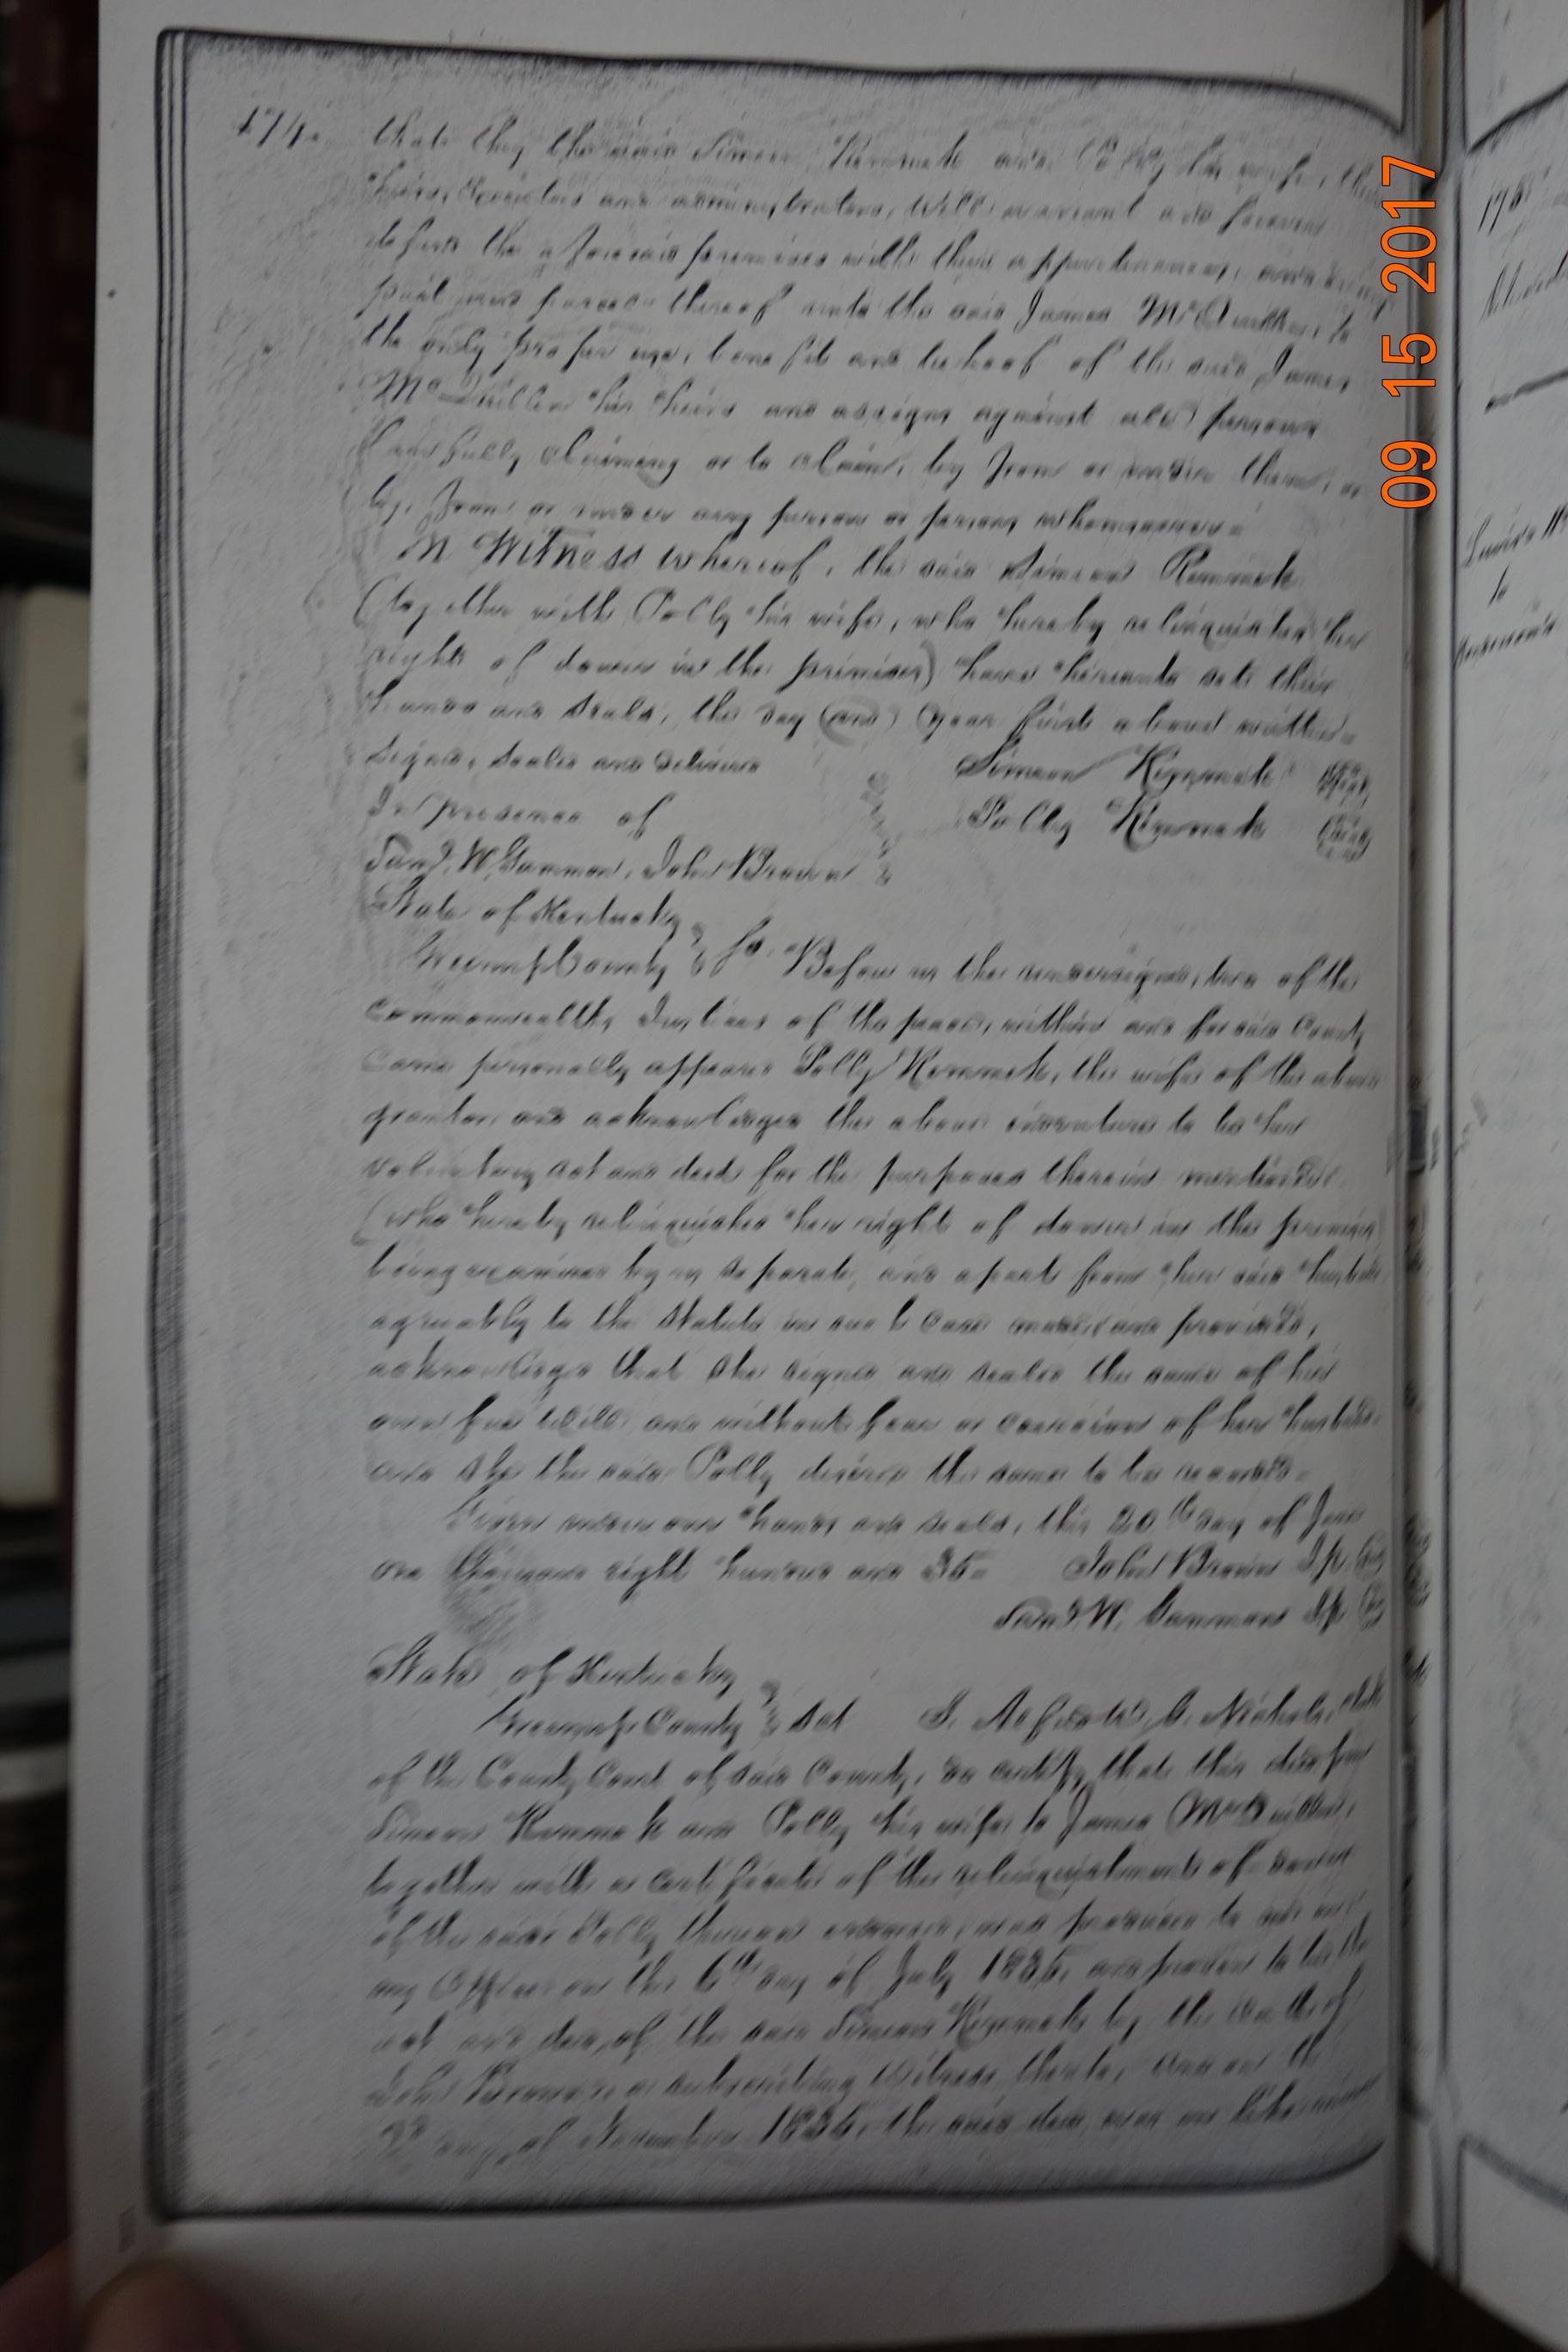 174.
that they the said Simeon Kimmek and Polly his wife, their
heirs, Executors and administrators, will warrant and forever
defend the aforesaid premises with their appurtenances, and every
part and parcel thereof unto the said James McQuillen, to
the only proper use, benefit and behoof of the said James
McQuillen his heirs and assigns against all persons
lawfully claiming or to claim, by from or under them, or
by, from or under any person or persons whomsoever=
In Witness whereof, the said Simeon Kimmek
(together with Polly his wife, who hereby relinquishes her
right of dower in the premises) have hereunto set their
hands and seals, the day (and) year first above written=
Signed, sealed and delivered
In presence of
W. Gammon, John Brown
Simeon Kimmek
Polly Kimmek
State of Kentucky
Greenup County
Before us the undersigned, two of the
commonwealths Justices of the peace, within and for said County
came personally appeared Polly Kimmek, the wife of the above
grantor and acknowledges the above indenture to be her
voluntary act and deed for the purposes therein mentioned
(who hereby relinquishes her right of dower in the premises)
being examined by us separate, and apart from her said husband
agreeably to the Statute in such case made and provided,
acknowledges that she signed and sealed the same of her
own free will and without fear or coercion of her husband
and she the said Polly desires the same to be recorded=
Given under our hands and seals, this 20th day of June
one thousand eight hundred and 35= John Brown J.p.
W. Gammon J.p.
State of Kentucky
Greenup County Sct I. C. Nichols, clerk
of the County Court of said County, do certify that this deed from
Simeon Kimmek and Polly his wife to James McQuillen,
together with a certificate of the relinquishment of dower
of the said Polly thereon endorsed, was produced to me in
my Office on the 6th day of July 1835, and proven to be the
act and deed of the said Simeon Kimmek by the oath of
John Brown a subscribing Witness thereto, and on the
day of 1835, the said deed was in like manner
09 15 2017
178
to